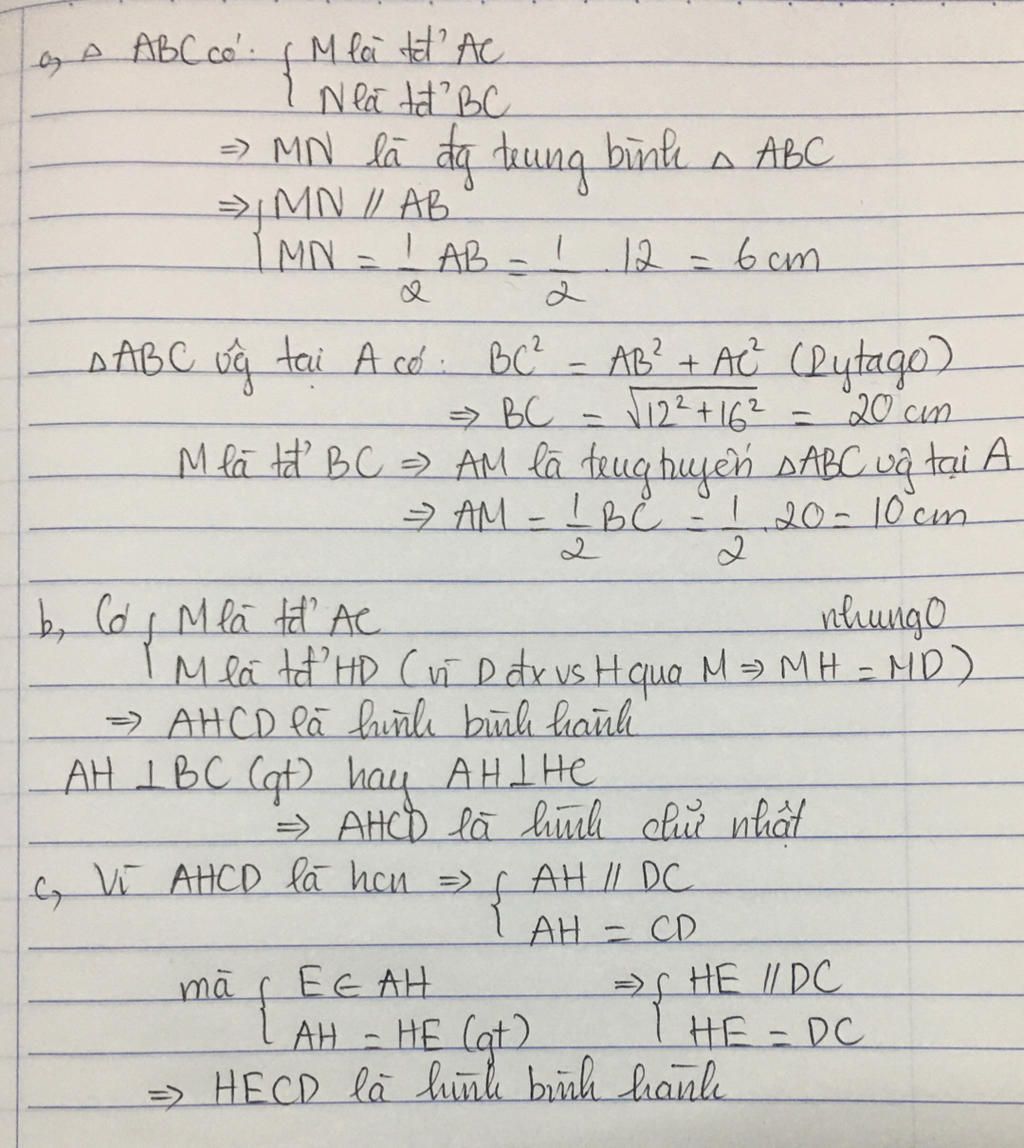 a, △ ABC có: { M là tđ' AC
N là tđ' BC
⇒ MN là đg trung bình △ ABC
⇒ { MN // AB
MN = 1/2 AB = 1/2 . 12 = 6 cm
△ABC vg̀ tại A có: BC² = AB² + AC² (Pytago)
⇒ BC = √(12² + 16²) = 20 cm
M là tđ' BC ⇒ AM là trung huyến △ABC vg̀ tại A
⇒ AM = 1/2 BC = 1/2 . 20 = 10 cm
b, Có { M là tđ' AC
nhung0
M là tđ' HD (vì D đx vs H qua M ⇒ MH = MD)
⇒ AHCD là hình bình hành
AH ⊥ BC (gt) hay AH ⊥ HC
⇒ AHCD là hình chữ nhật
c, Vì AHCD là hcn ⇒ { AH // DC
AH = CD
mà { E ∈ AH ⇒ { HE // DC
AH = HE (gt) HE = DC
⇒ HECD là hình bình hành